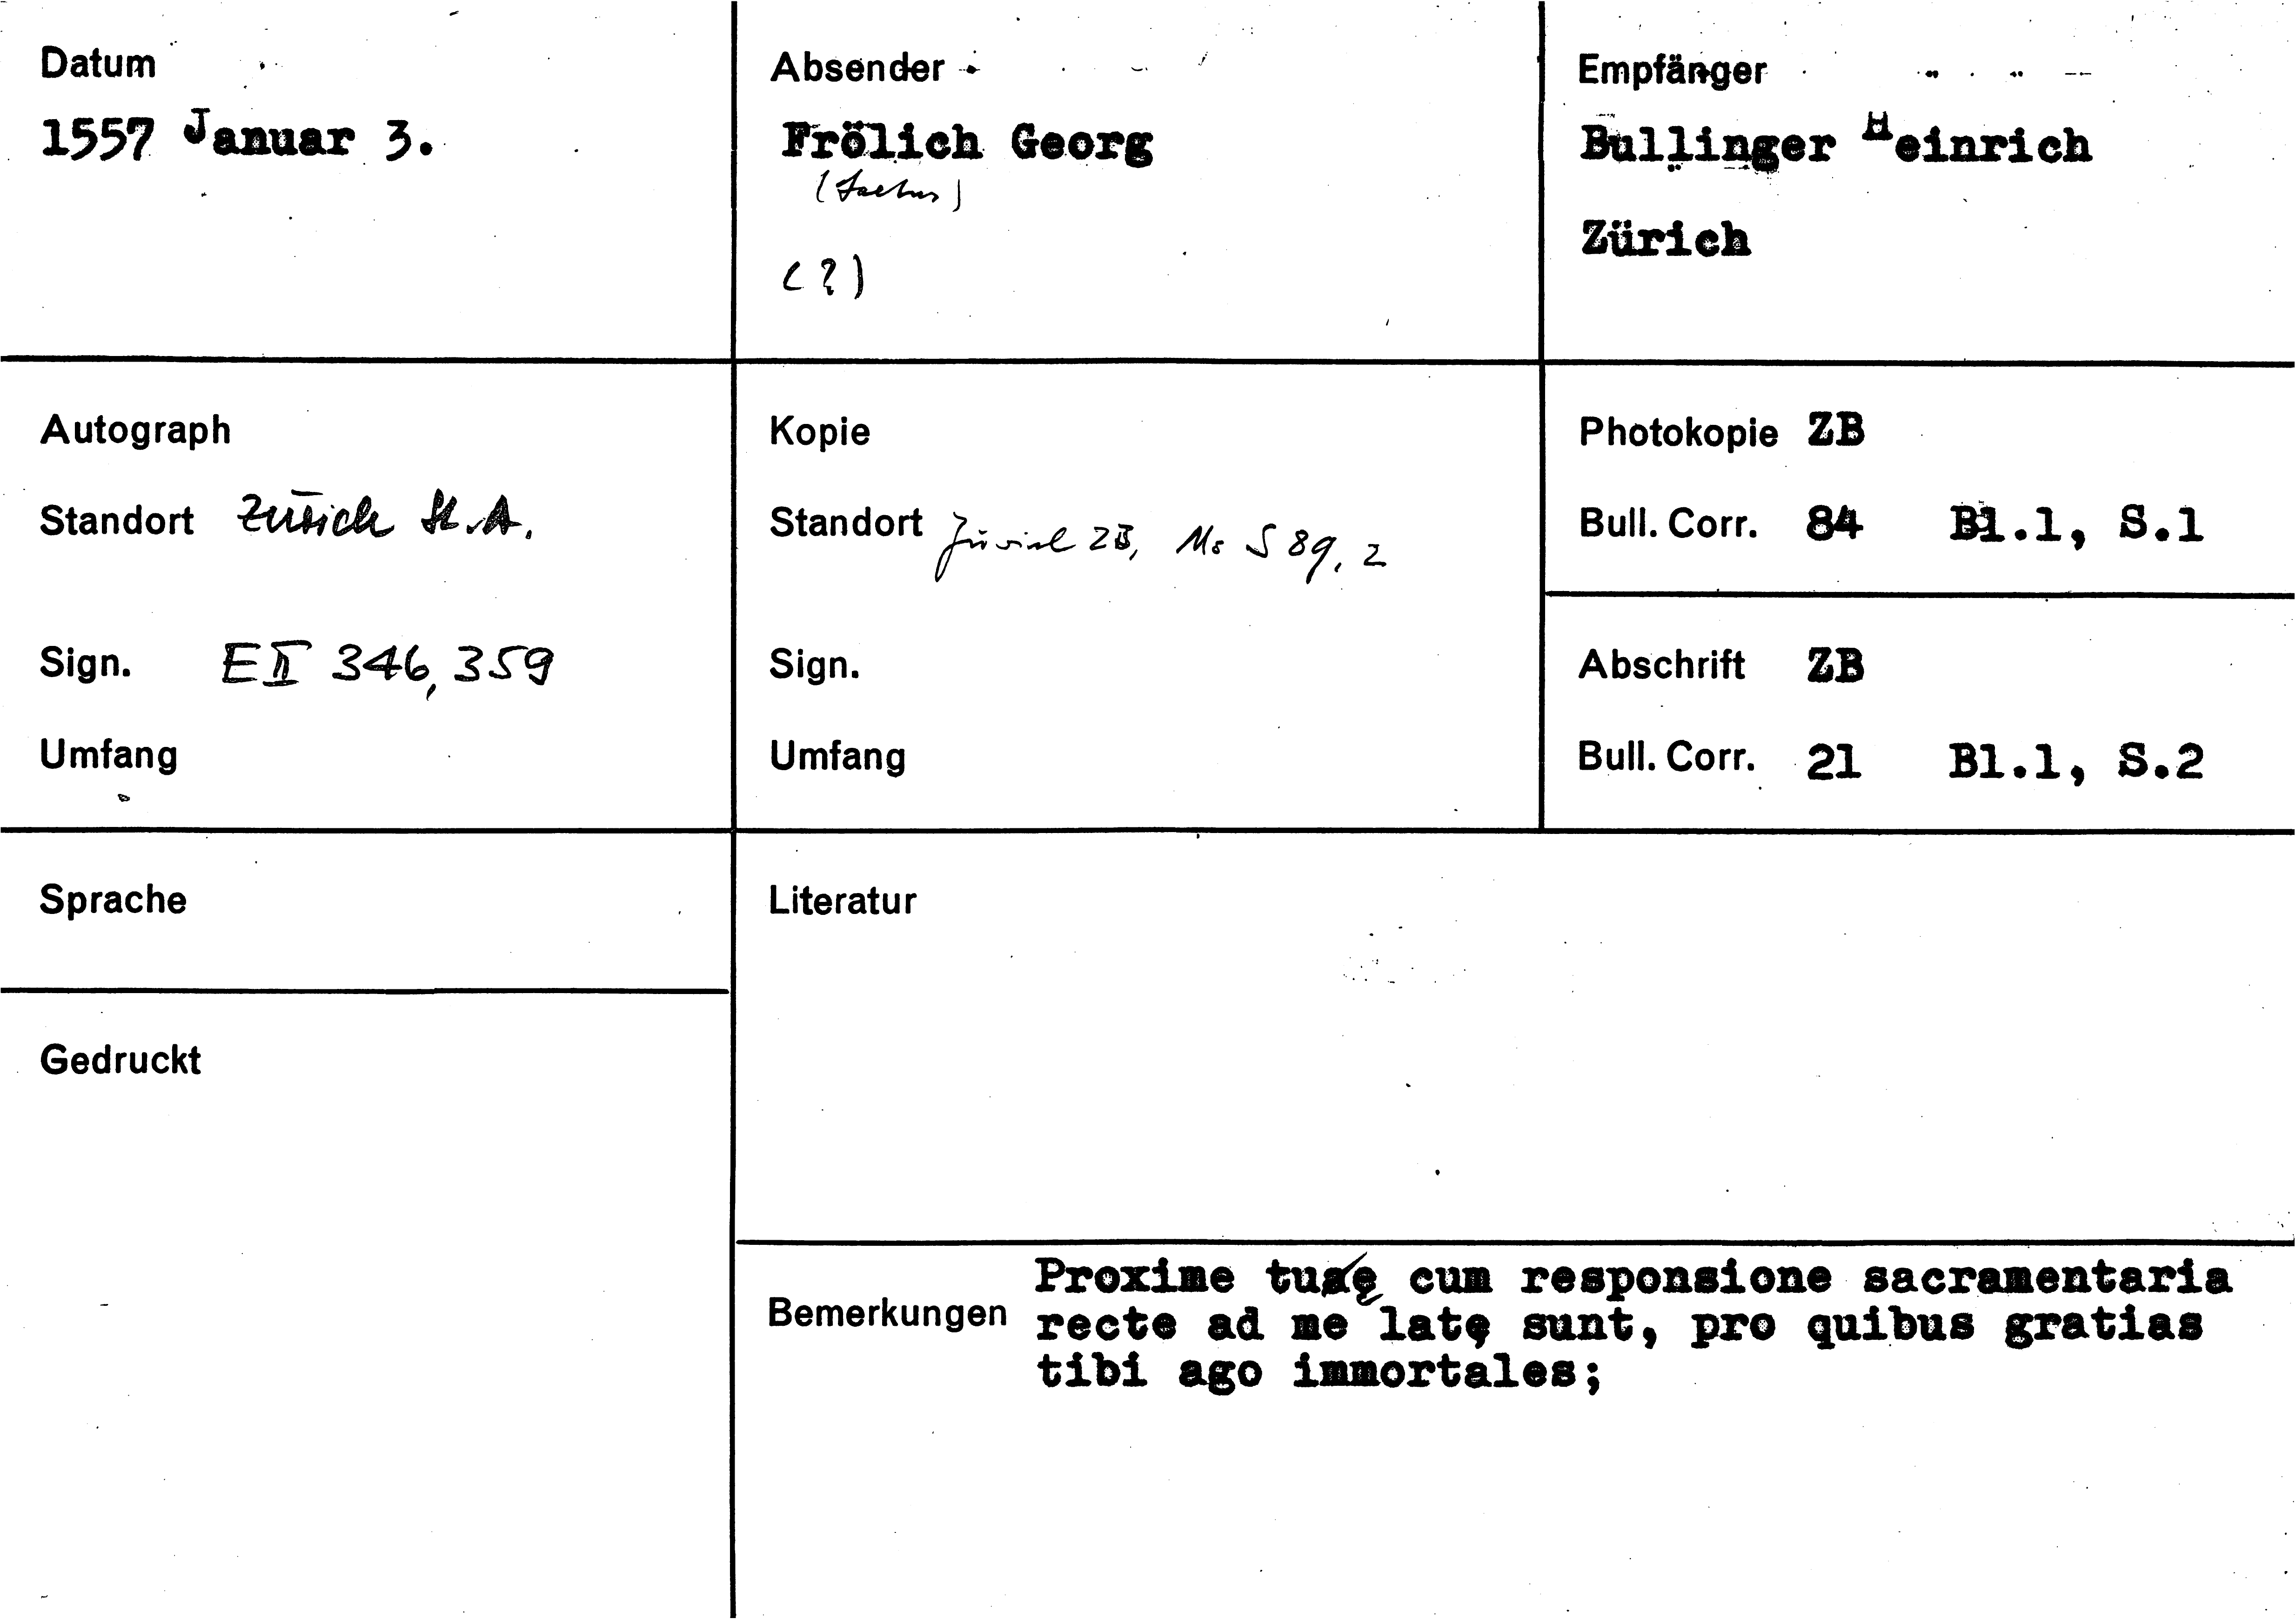 Datum
1557 Januar 3.
Absender
Frölich Georg
(Laetus)
(?)
Empfänger
Bullinger Heinrich
Zürich
Autograph
Standort Zürich St.A.
Sign. E II 346, 359
Umfang
Kopie
Standort Zürich ZB, Ms S 89, 2
Sign.
Umfang
Photokopie ZB
Bull. Corr. 84 Bl.1, S.1
Abschrift ZB
Bull. Corr. 21 Bl.1, S.2
Sprache
Gedruckt
Literatur
Bemerkungen
Proxime tuę cum responsione sacramentaria
recte ad me latę sunt, pro quibus gratias
tibi ago immortales;